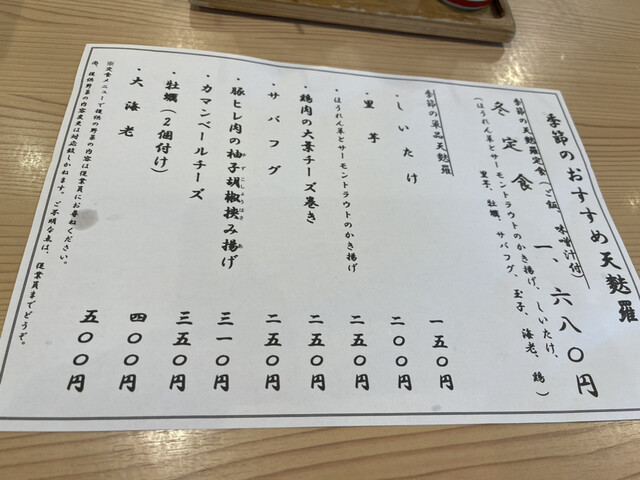 季節のおすすめ天麩羅
季節の天麩羅定食(ご飯、味噌汁付)
冬定食 一、六八〇円
(ほうれん草とサーモントラウトのかき揚げ、しいたけ、
里芋、牡蠣、サバフグ、玉子、海老、鶏)
季節の単品天麩羅
・しいたけ 一五〇円
・里芋 二〇〇円
・ほうれん草とサーモントラウトのかき揚げ 二五〇円
・鶏肉の大葉チーズ巻き 二五〇円
・サバフグ 二五〇円
・豚ヒレ肉の柚子胡椒挟み揚げ 三一〇円
・カマンベールチーズ 三五〇円
・牡蠣(2個付け) 四〇〇円
・大海老 五〇〇円
※定食メニューで提供の野菜の内容は従業員にお尋ねください。
尚、提供野菜の内容変更は対応致しかねます。ご不明な点は、従業員までどうぞ。